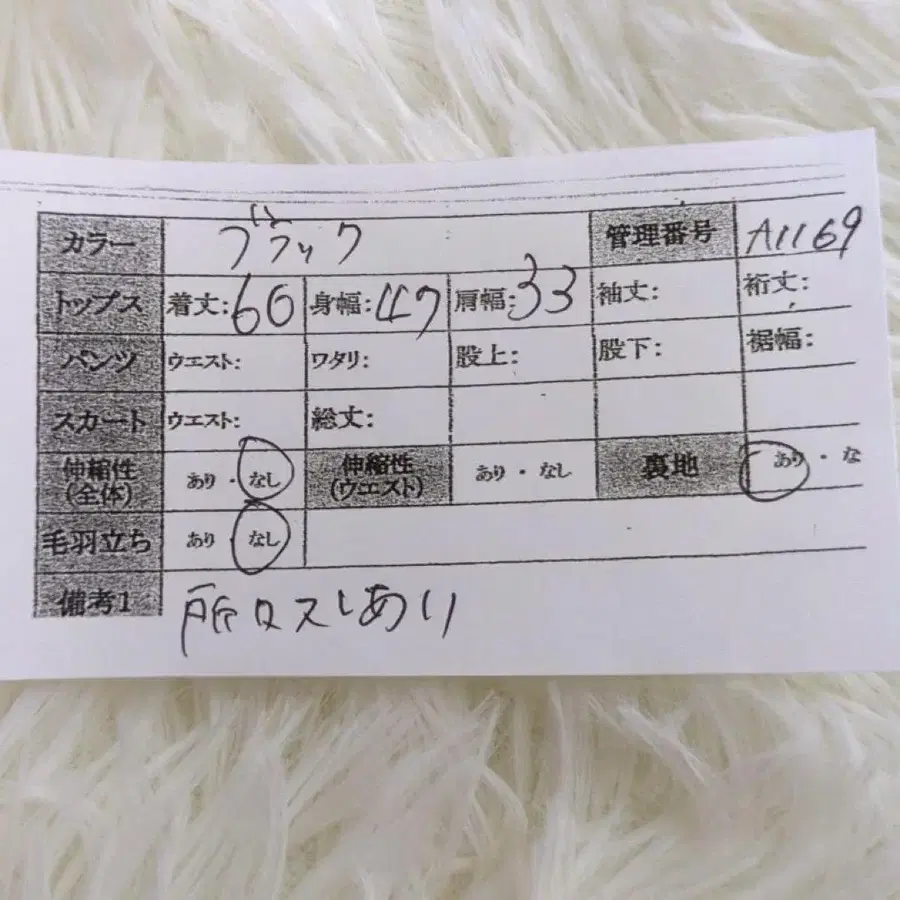 カラー ブラック 管理番号 A1169
トップス 着丈:60 身幅:47 肩幅:33 袖丈: 裄丈:
パンツ ウエスト: ワタリ: 股上: 股下: 裾幅:
スカート ウエスト: 総丈:
伸縮性(全体) あり・なし 伸縮性(ウエスト) あり・なし 裏地 あり・な
毛羽立ち あり・なし
備考1 所々スレあり